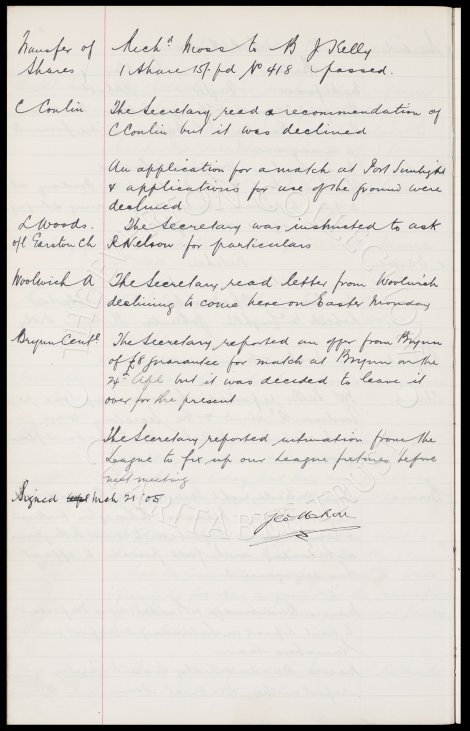 Transfer of Rich^d Moss to B J Kelly
Shares 1 Share 15/- pd No 418 passed.
C Conlin The Secretary read a recommendation of
C Conlin but it was declined
An application for a match at Port Sunlight
& applications for use of the ground were
declined
L Woods. The Secretary was instructed to ask
of Earston Ch R Nelson for particulars
Woolwich A The Secretary read letter from Woolwich
declining to come here on Easter Monday
Brynn Cent^l The Secretary reported an offer from Brynn
of £8 guarantee for match at Brynn on the
24th Apl but it was decided to leave it
over for the present
The Secretary reported intimation from the
League to fix up our League fixtures before
next meeting
Signed Mch 21 '05